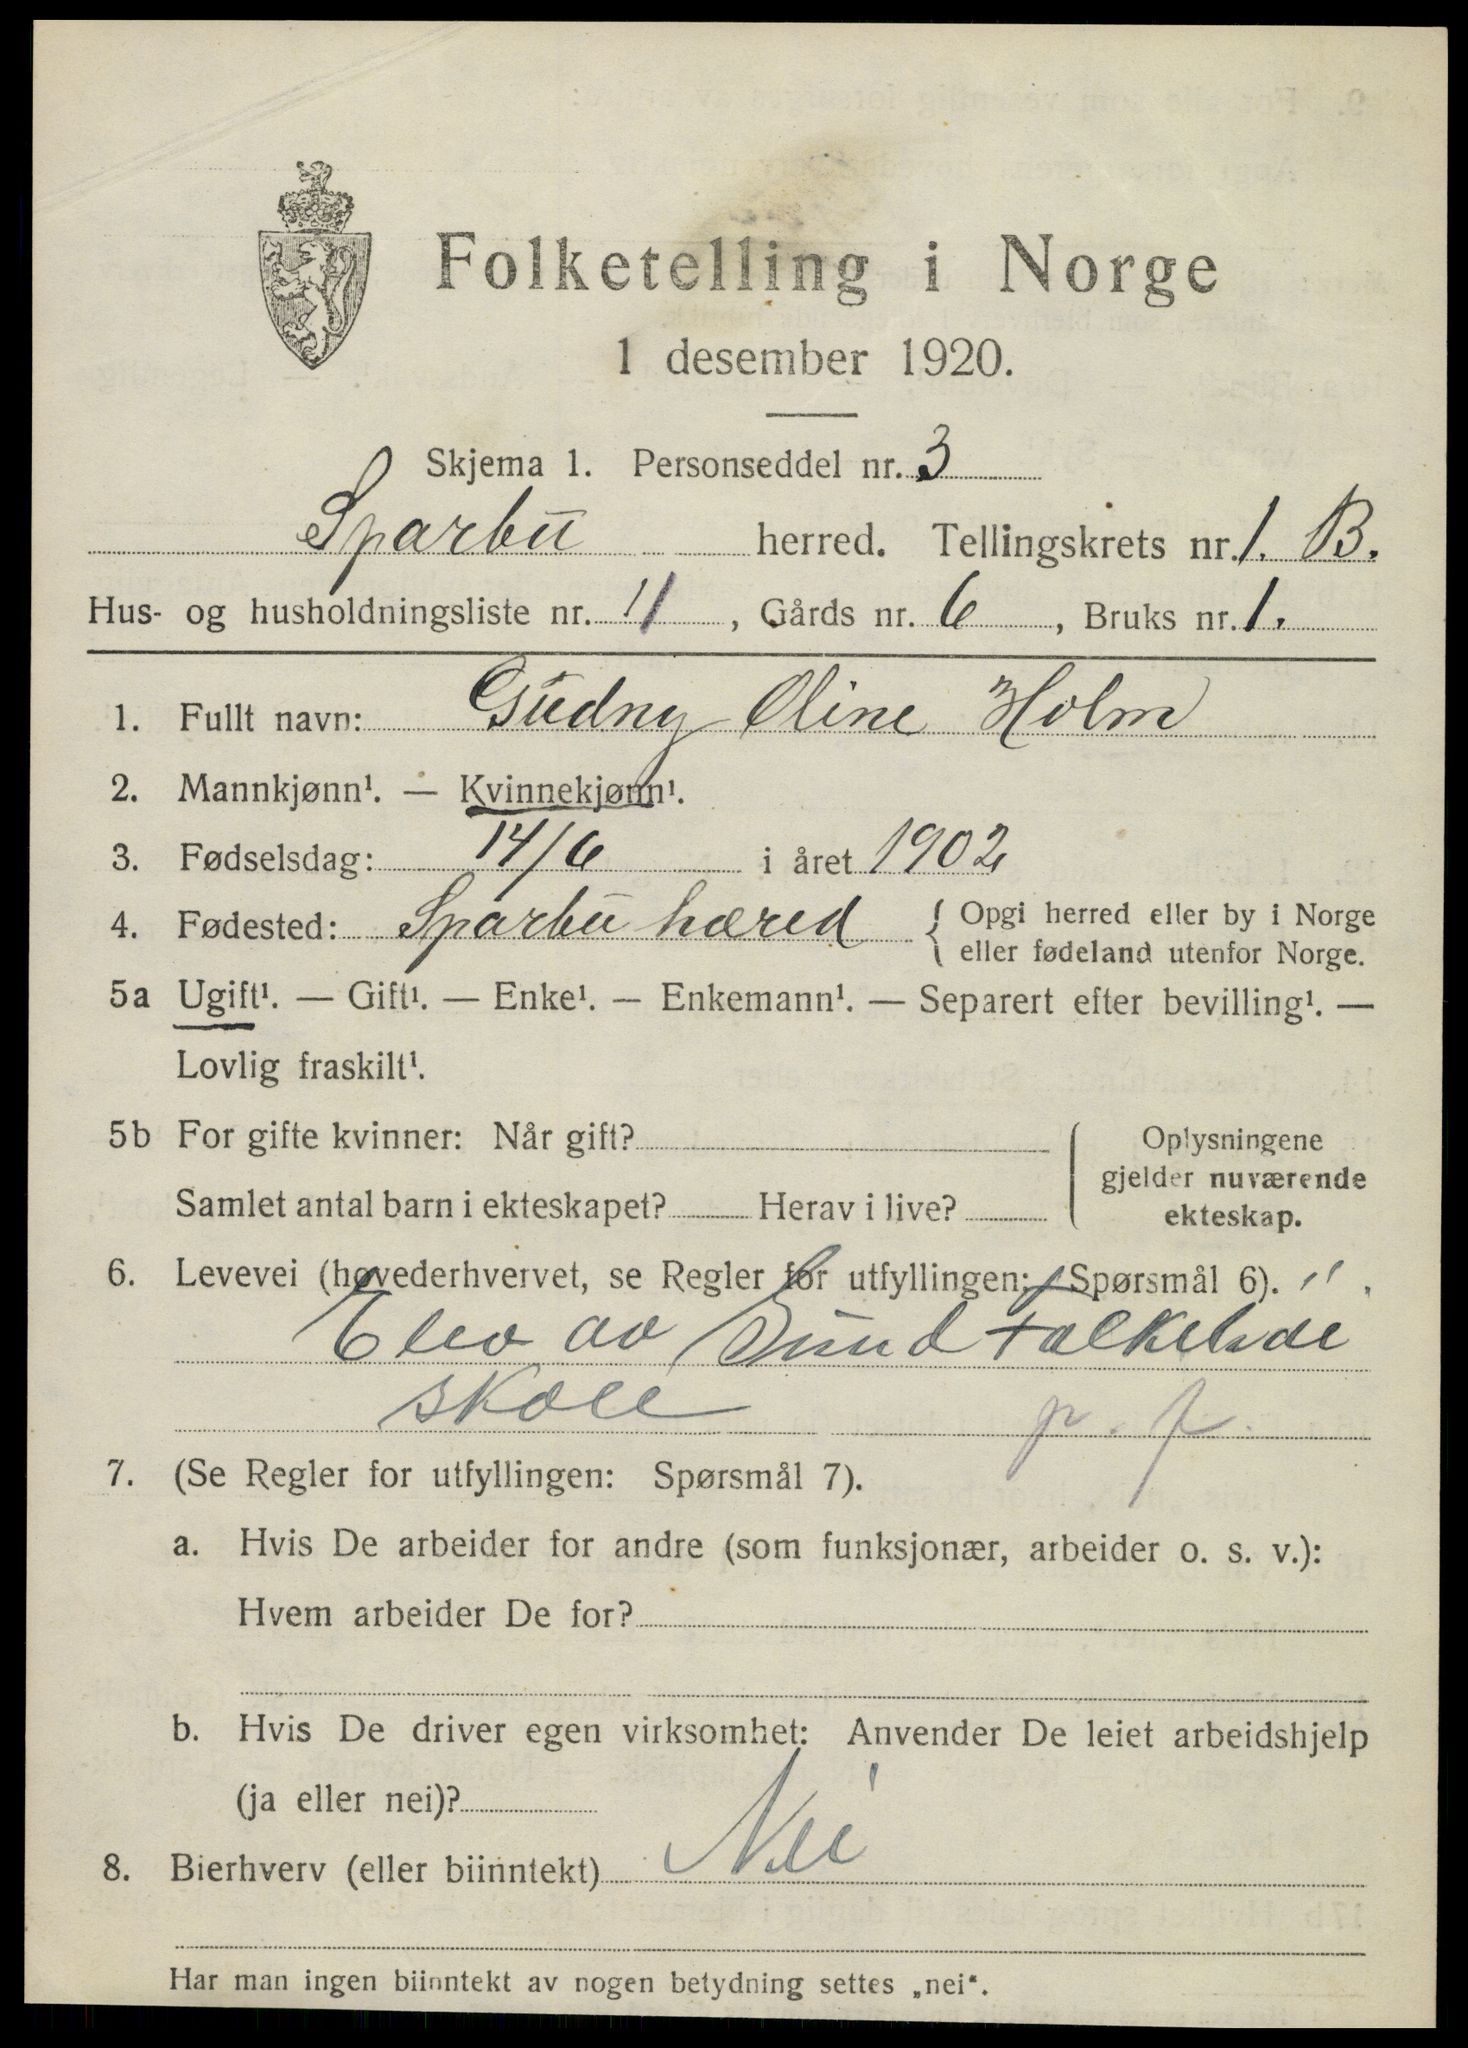 Folketelling i Norge
1 desember 1920.
Skjema 1. Personseddel nr. 3
Sparbu herred. Tellingskrets nr. 1. B.
Hus- og husholdningsliste nr. 11, Gårds nr. 6, Bruks nr. 1.
1. Fullt navn: Gudny Oline Holm
2. Mannkjønn¹. — Kvinnekjønn¹.
3. Fødselsdag: 14/6 i året 1902
4. Fødested: Sparbu hæred { Opgi herred eller by i Norge
eller fødeland utenfor Norge.
5a Ugift¹. — Gift¹. — Enke¹. — Enkemann¹. — Separert efter bevilling¹. —
Lovlig fraskilt¹.
5b For gifte kvinner: Når gift?
Samlet antal barn i ekteskapet? Herav i live?
Oplysningene
gjelder nuværende
ekteskap.
6. Levevei (hovederhvervet, se Regler for utfyllingen: Spørsmål 6).
Elev av Sund Folkehøi
skole p. f.
7. (Se Regler for utfyllingen: Spørsmål 7).
a. Hvis De arbeider for andre (som funksjonær, arbeider o. s. v.):
Hvem arbeider De for?
b. Hvis De driver egen virksomhet: Anvender De leiet arbeidshjelp
(ja eller nei)?
8. Bierhverv (eller biinntekt) Nei
Har man ingen biinntekt av nogen betydning settes „nei“.